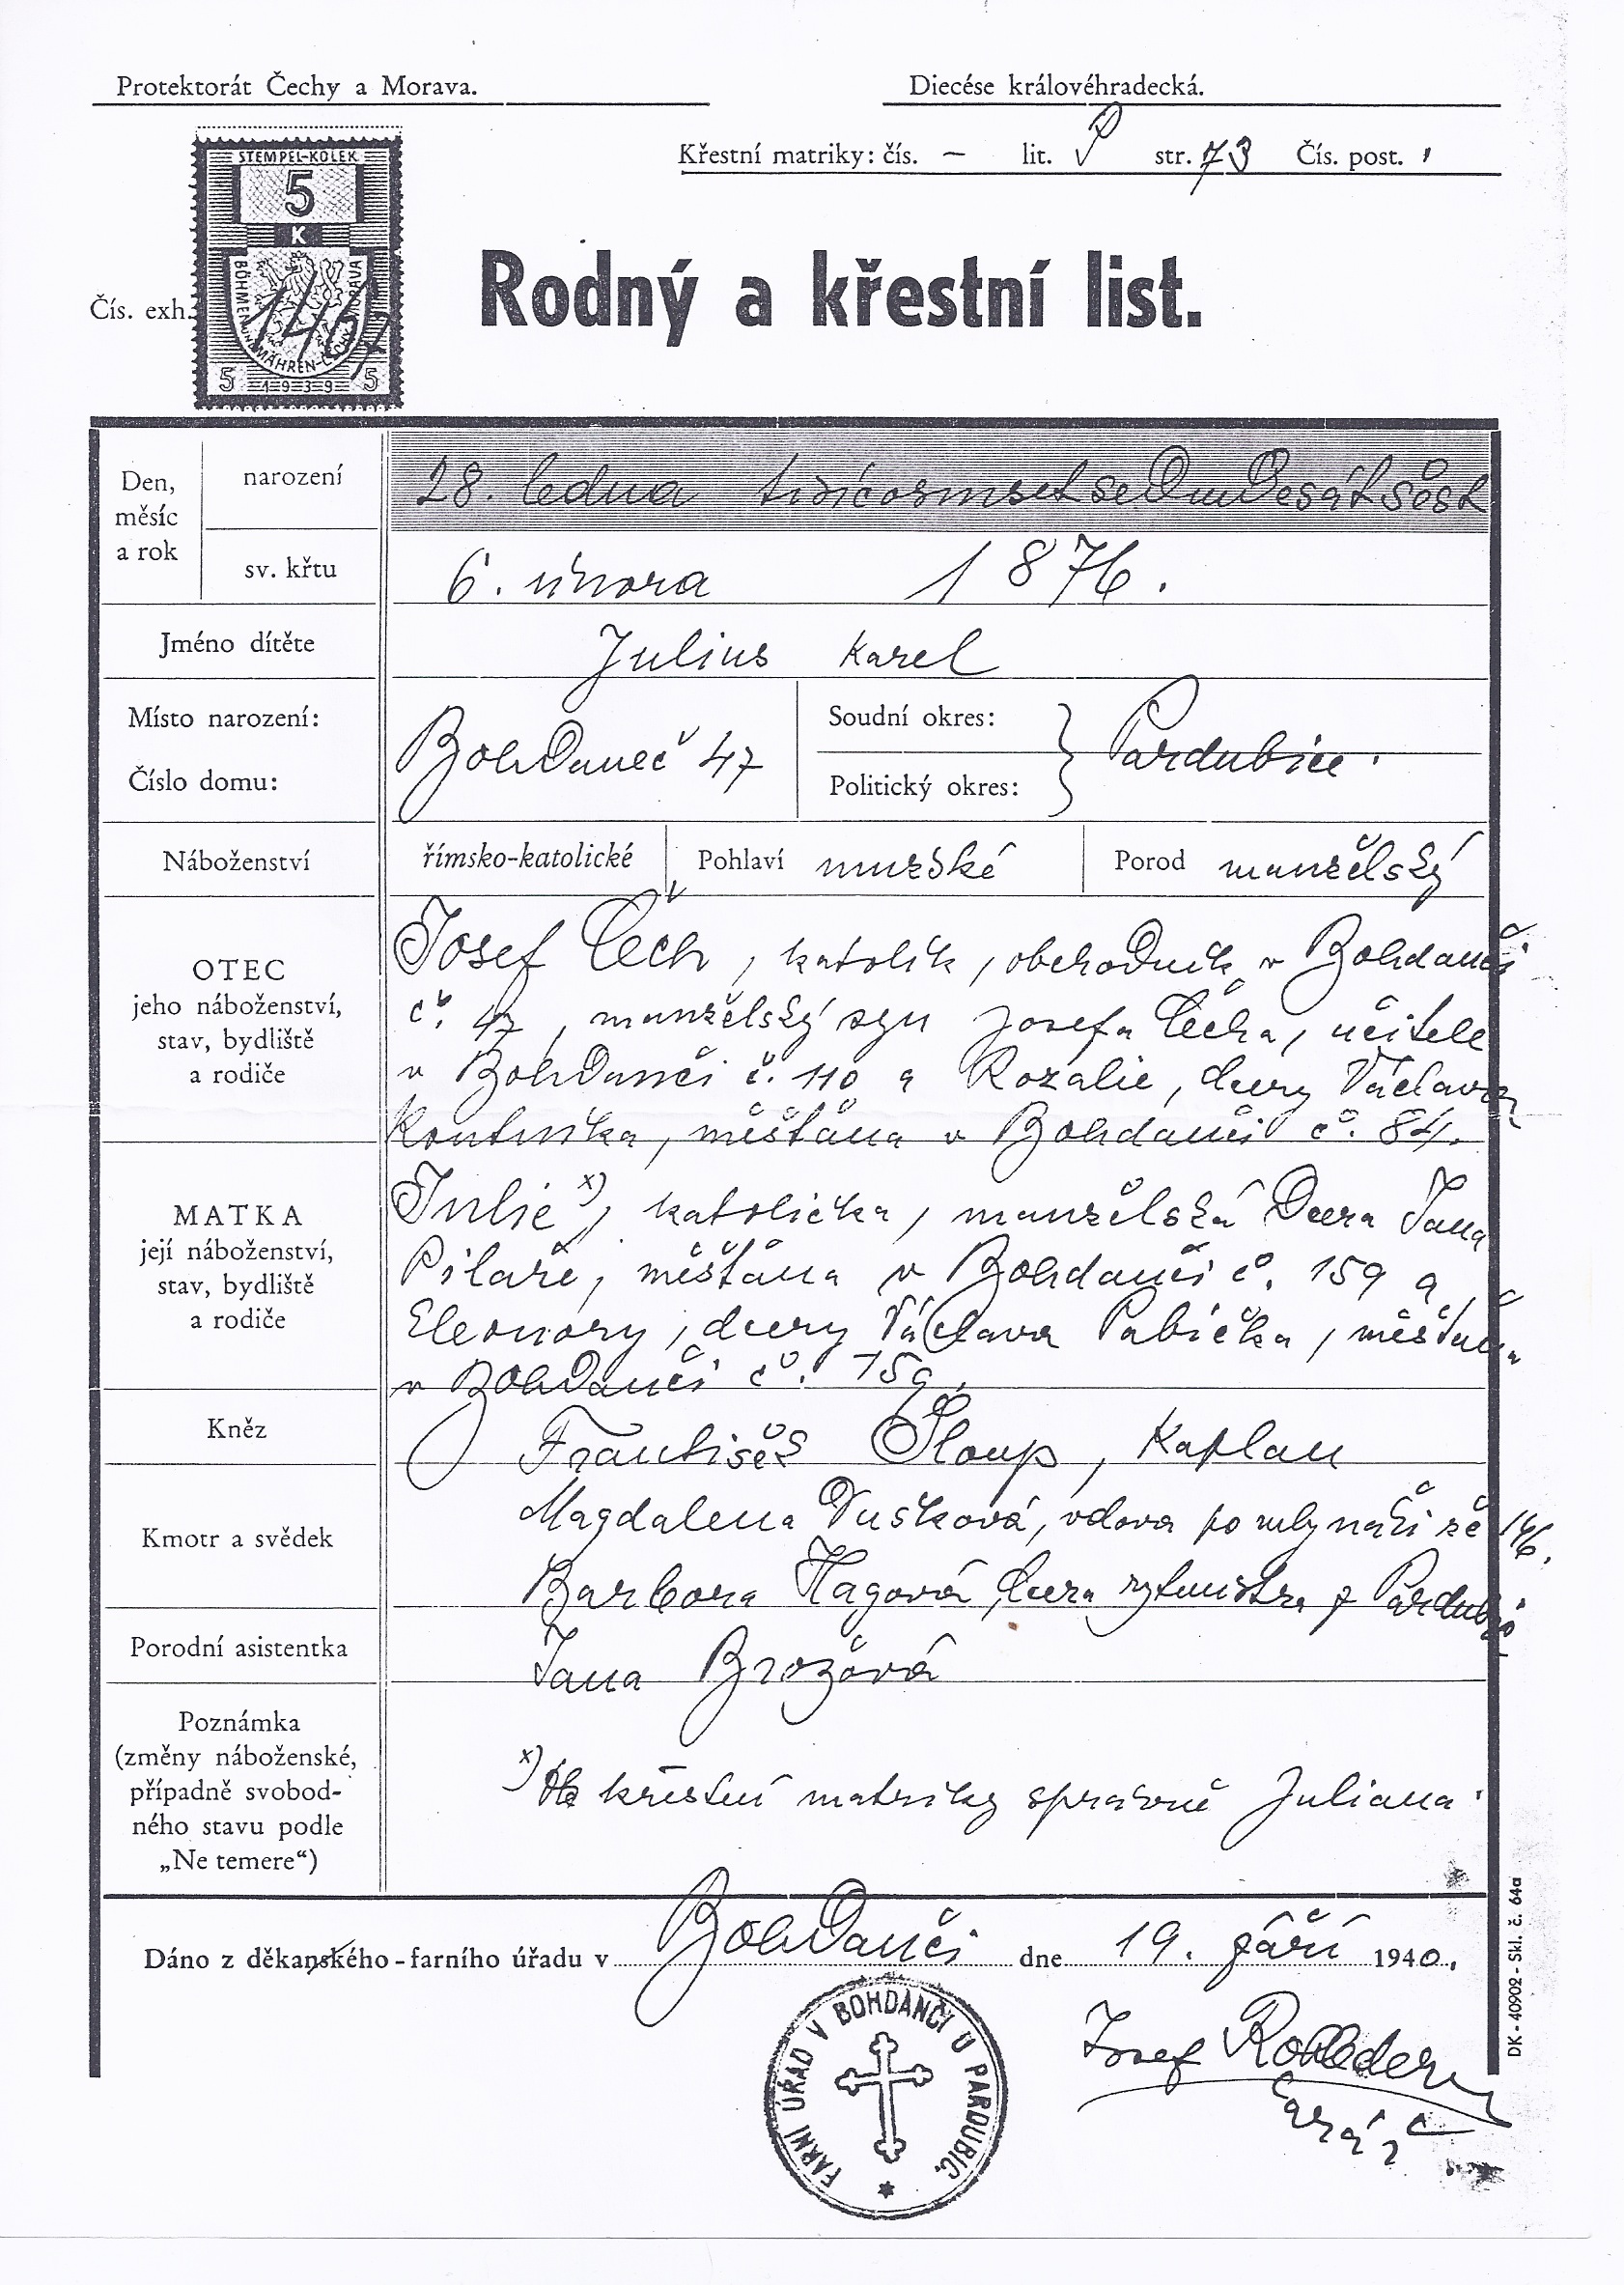 Protektorát Čechy a Morava.
Diecése královéhradecká.
Křestní matriky: čís. – lit. P str. 73 Čís. post.
STEMPEL-KOLEK
5
K
BÖHMEN MÄHREN-ČECHY MORAVA
5 1939 5
Čís. exh.
Rodný a křestní list.
Den, měsíc a rok
narození
28. ledna tisícosmsetsedmdesátšest
sv. křtu
6. února 1876.
Jméno dítěte
Julius Karel
Místo narození:
Číslo domu:
Bohdaneč 47
Soudní okres:
Politický okres:
Pardubice.
Náboženství
římsko-katolické
Pohlaví mužské
Porod manželský
OTEC
jeho náboženství,
stav, bydliště
a rodiče
Josef Čech, katolík, obchodník v Bohdanči
č. 47, manželský syn Josefa Čecha, učitele
v Bohdanči č. 110 a Rozalie, dcery Václava
měšťana v Bohdanči č. 84.
MATKA
její náboženství,
stav, bydliště
a rodiče
Julie x), katolička, manželská dcera Jana
Pilaře, měšťana v Bohdanči č. 159 a
Eleonory, dcery Václava Pabíčka, měšťana
v Bohdanči č. 159.
Kněz
František Sloup, kaplan
Kmotr a svědek
Magdalena Dušková, vdova po mlynáři z č. 146.
Barbora Hagová, dcera rytmistra z Pardubic
Porodní asistentka
Jana Brožová
Poznámka
(změny náboženské,
případně svobod-
ného stavu podle
„Ne temere“)
x) Dle křestní matriky správně Juliana.
Dáno z děkanského - farního úřadu v Bohdanči dne 19. září 1940.
FARNÍ ÚŘAD V BOHDANČI U PARDUBIC.
Josef Rohleder
farář
DK - 40902 - Skl. č. 64a